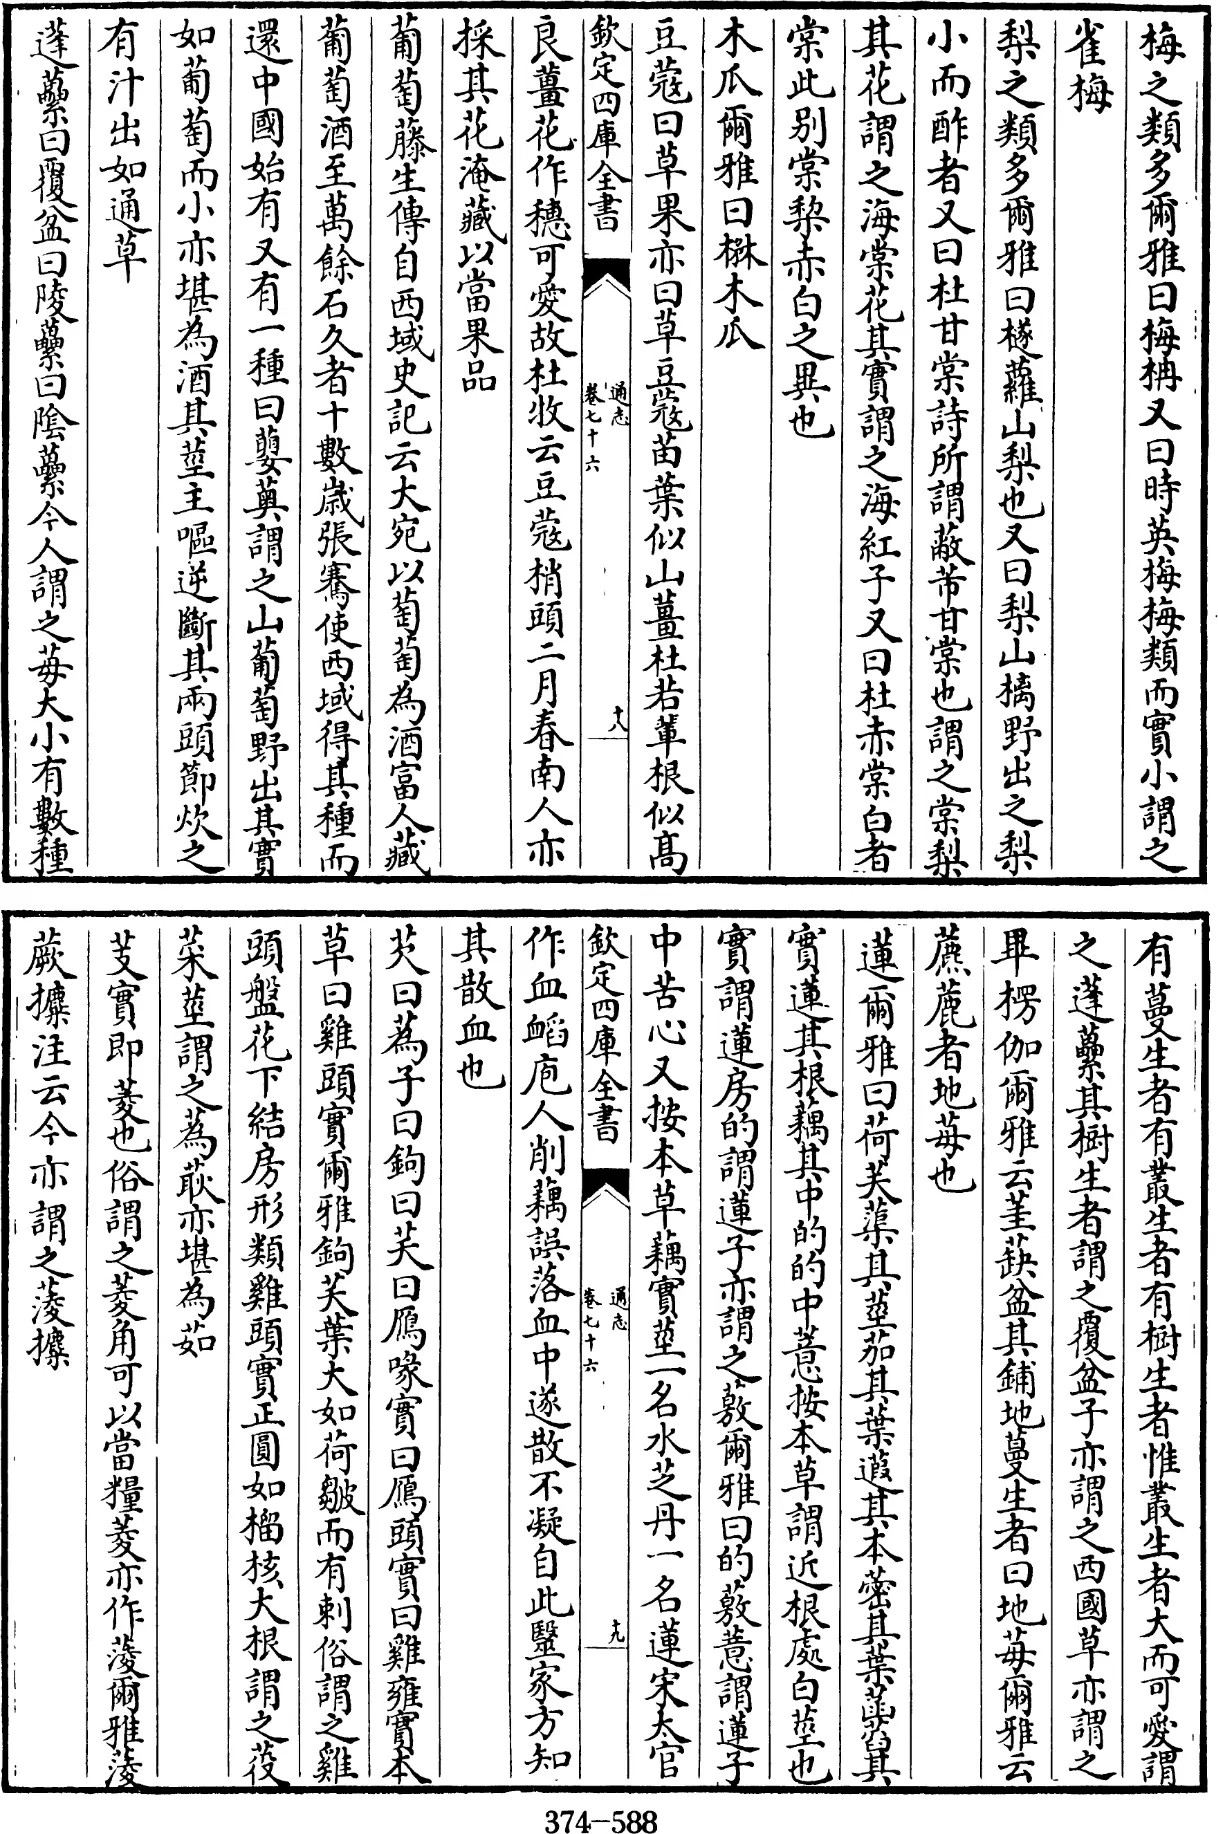 梅之類多爾雅曰梅柟又曰時英梅梅類而實小謂之
雀梅
梨之類多爾雅曰檖蘿山梨也又曰梨山樆野出之梨
小而酢者又曰杜甘棠詩所謂蔽芾甘棠也謂之棠梨
其花謂之海棠花其實謂之海紅子又曰杜赤棠白者
棠此别棠梨赤白之異也
木瓜爾雅曰楙木瓜
豆蔻曰草果亦曰草豆蔻苗葉似山薑杜若輩根似髙
欽定四庫全書
通志
卷七十六
十八
良薑花作穗可愛故杜牧云豆蔻梢頭二月春南人亦
採其花淹藏以當果品
葡萄藤生傳自西域史記云大宛以萄萄為酒富人藏
葡萄酒至萬餘石久者十數歲張騫使西域得其種而
還中國始有又有一種曰蘡薁謂之山葡萄野出其實
如葡萄而小亦堪為酒其莖主嘔逆斷其兩頭節炊之
有汁出如通草
蓬蘽曰覆盆曰陵蘽曰陰蘽今人謂之莓大小有數種
有蔓生者有叢生者有樹生者惟叢生者大而可愛謂
之蓬蘽其樹生者謂之覆盆子亦謂之西國草亦謂之
畢楞伽爾雅云堇蒛盆其鋪地蔓生者曰地莓爾雅云
藨麃者地莓也
蓮爾雅曰荷芙蕖其莖茄其葉蕸其本蔤其葉菡萏其
實蓮其根藕其中的的中薏按本草謂近根處白莖也
實謂蓮房的謂蓮子亦謂之蔜爾雅曰的蔜薏謂蓮子
中苦心又按本草藕實莖一名水芝丹一名蓮宋太官
欽定四庫全書
通志
卷七十六
十九
作血䘓庖人削藕誤落血中遂散不凝自此毉家方知
其散血也
芡曰蔿子曰鉤曰芺曰鴈喙實曰鴈頭實曰雞雍實本
草曰雞頭實爾雅鉤芺葉大如荷皺而有刺俗謂之雞
頭盤花下結房形類雞頭實正圓如榴核大根謂之葰
菜莖謂之蔿菆亦堪為茹
芰實即菱也俗謂之菱角可以當糧菱亦作蔆爾雅蔆
蕨攈注云今亦謂之蔆攈
374-588